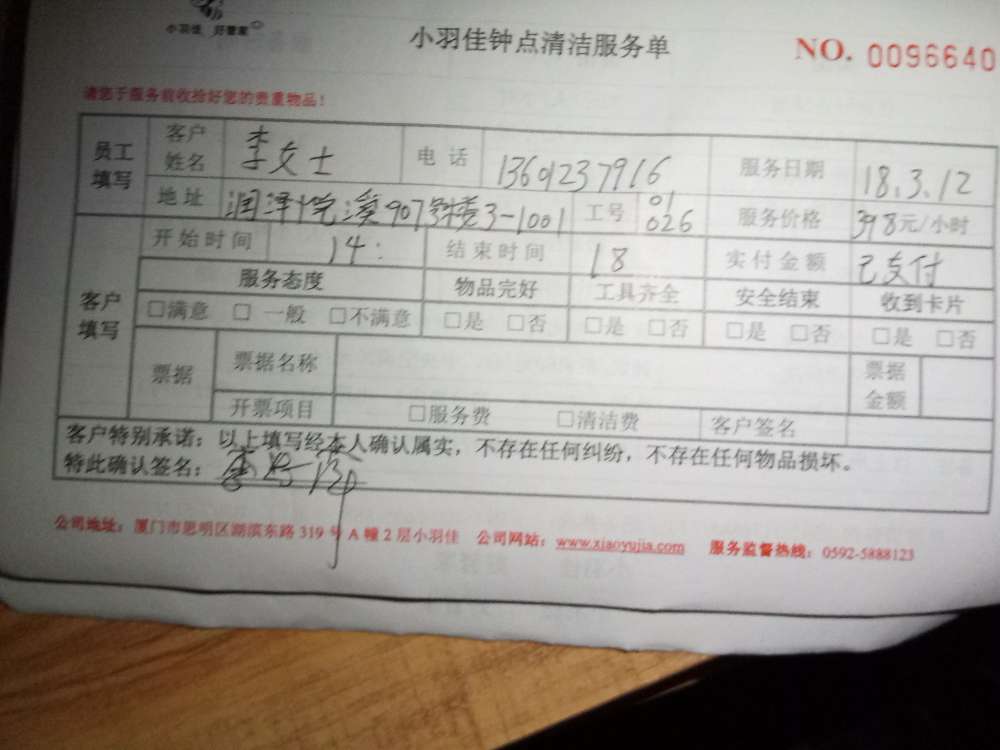 小羽佳 好管家
小羽佳钟点清洁服务单
NO. 0096640
请您于服务前收拾好您的贵重物品！
员工填写 客户姓名 李女士 电话 13601237916 服务日期 18.3.12
地址 润泽 907 3-1001 工号 01 026 服务价格 398元/小时
客户填写 开始时间 14: 结束时间 18 实付金额 已支付
服务态度 物品完好 工具齐全 安全结束 收到卡片
□满意 □一般 □不满意 □是 □否 □是 □否 □是 □否 □是 □否
票据 票据名称 票据金额
开票项目 □服务费 □清洁费 客户签名
客户特别承诺：以上填写经本人确认属实，不存在任何纠纷，不存在任何物品损坏。
特此确认签名：
公司地址：厦门市思明区湖滨东路 319 号 A 幢 2 层小羽佳 公司网站：www.xiaoyujia.com 服务监督热线：0592-5888123